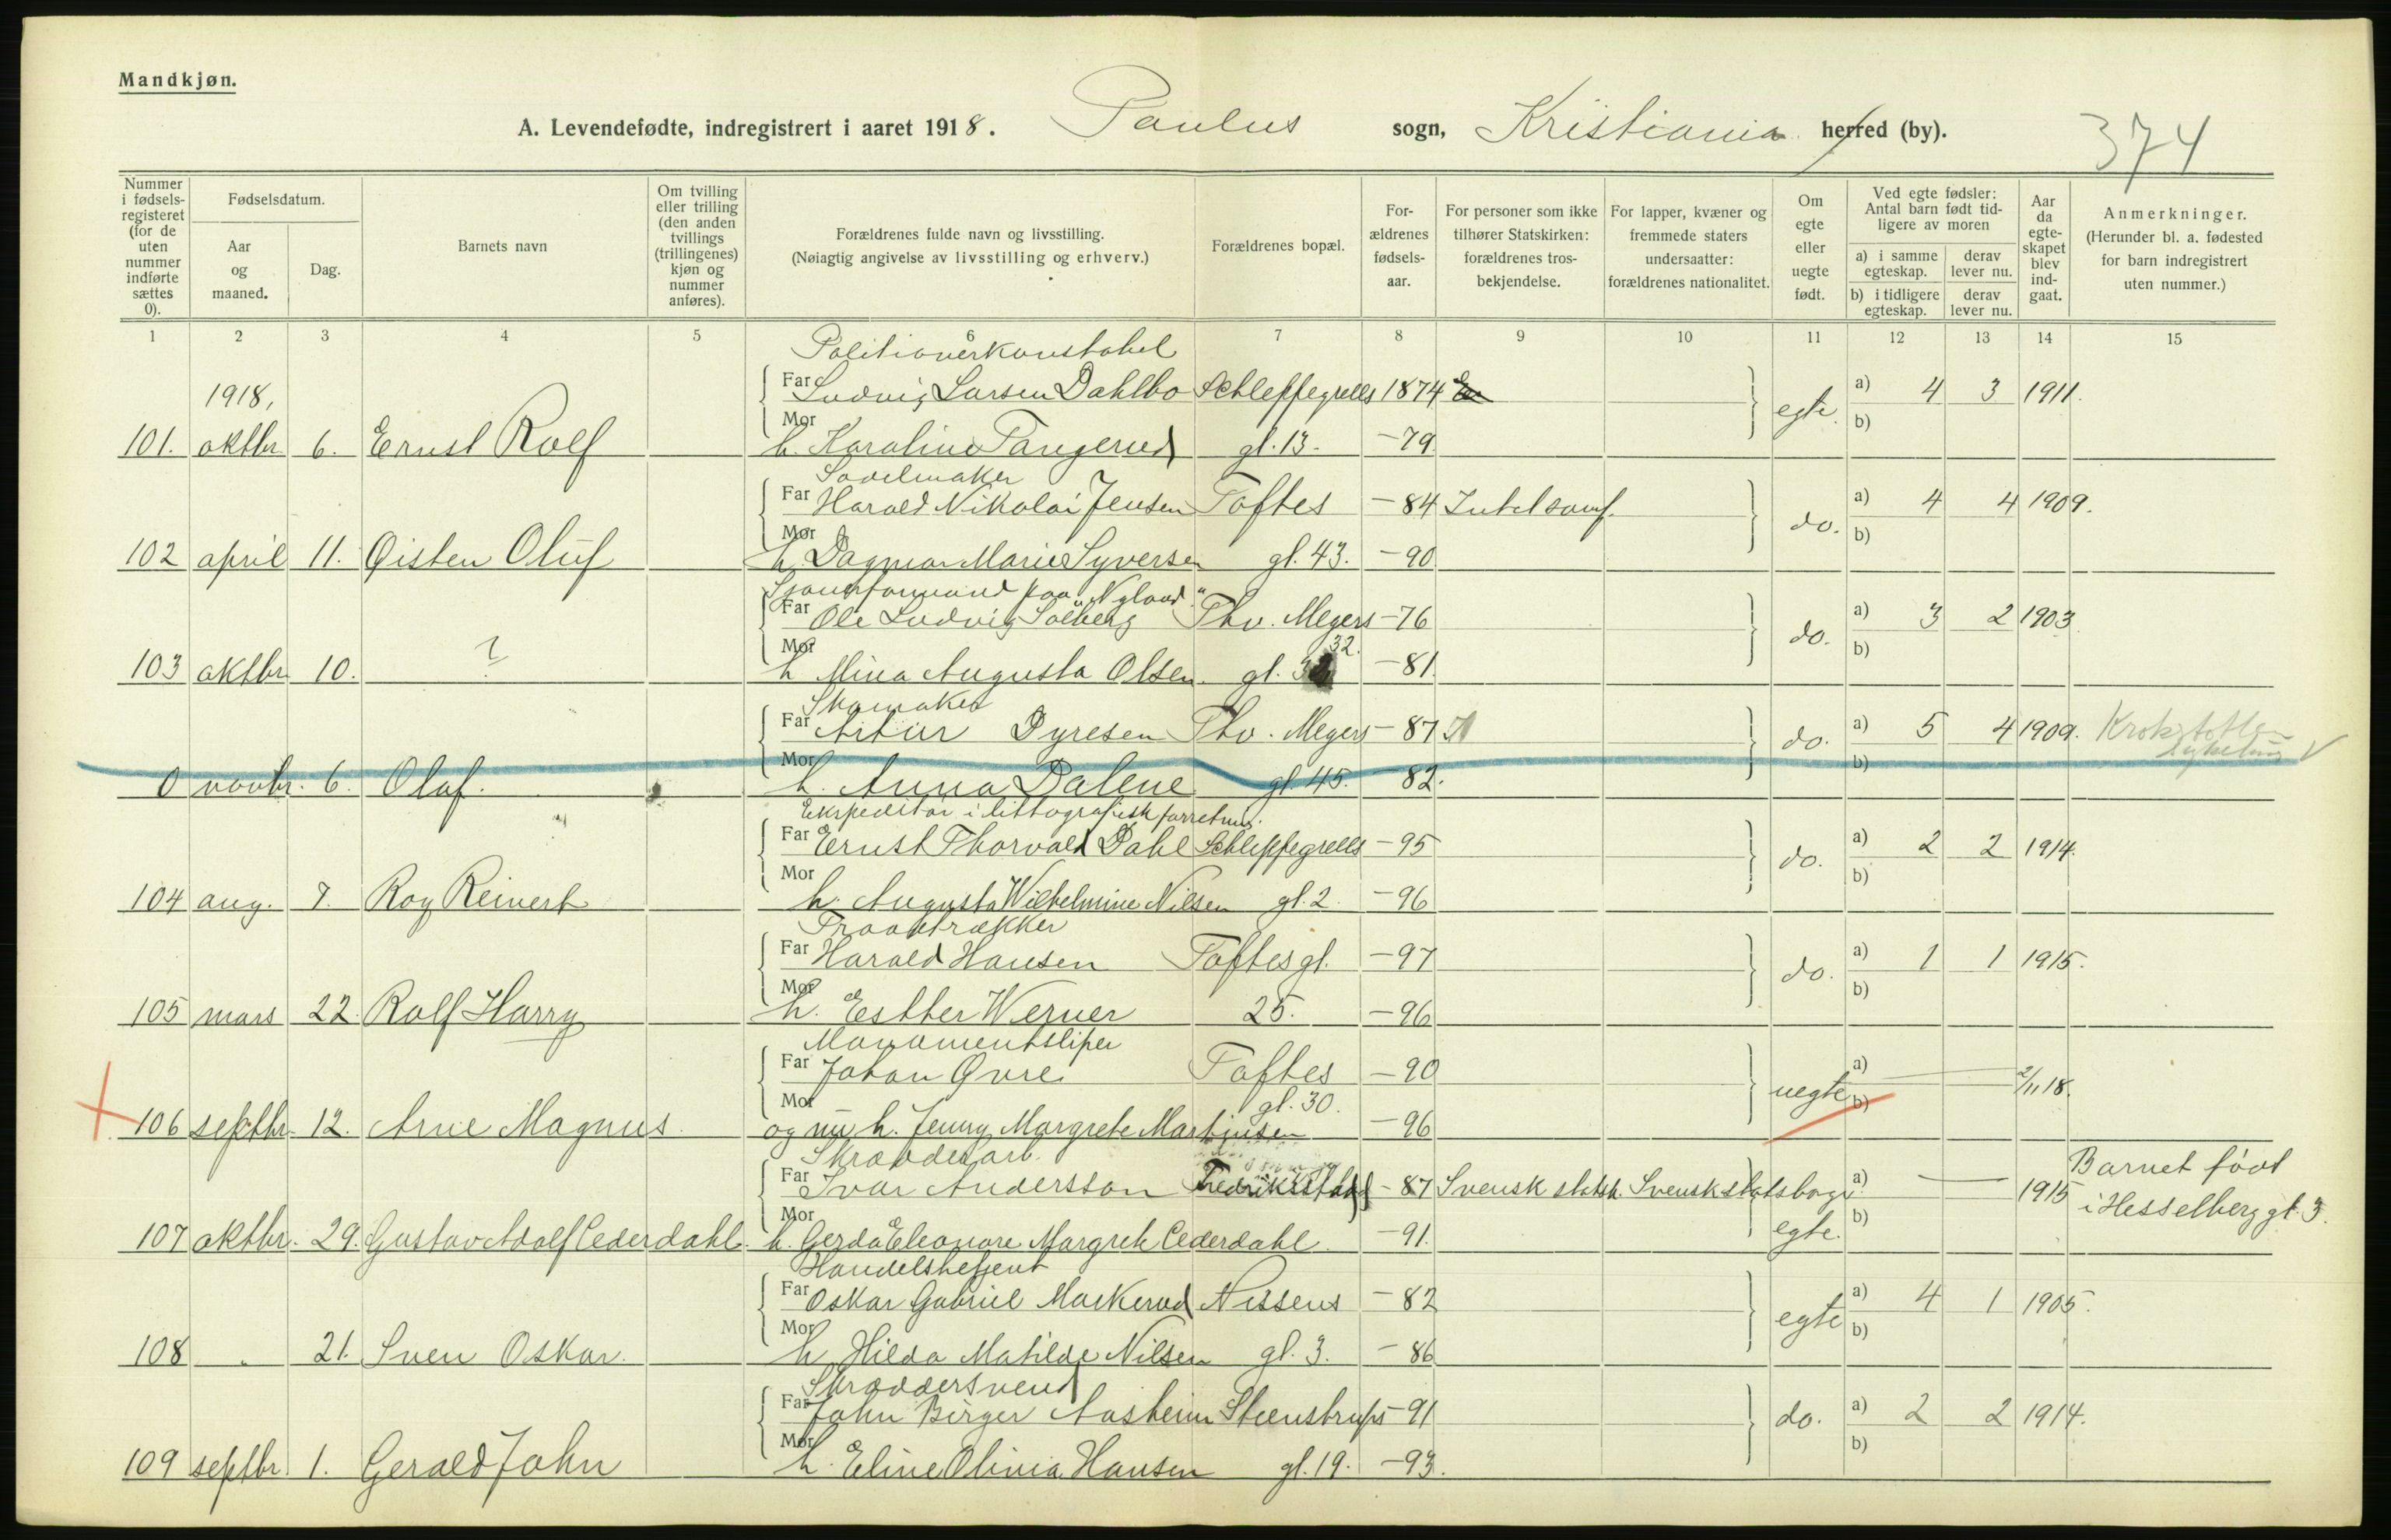 Mandkjøn.
A. Levendefødte, indregistrert i aaret 1918. Paulus sogn, Kristiania herred (by). 374
Nummer i fødselsregisteret (for de uten nummer indførte sættes 0).
Fødselsdatum.
Aar og maaned.
Dag.
Barnets navn
Om tvilling eller trilling (den anden tvillings (trillingenes) kjøn og nummer anføres).
Forældrenes fulde navn og livsstilling.
(Nøiagtig angivelse av livsstilling og erhverv.)
Forældrenes bopæl.
Forældrenes fødselsaar.
For personer som ikke tilhører Statskirken: forældrenes trosbekjendelse.
For lapper, kvæner og fremmede staters undersaatter: forældrenes nationalitet.
Om egte eller uegte født.
Ved egte fødsler: Antal barn født tidligere av moren
a) i samme egteskap. derav lever nu.
b) i tidligere egteskap. derav lever nu.
Aar da egteskapet blev indgaat.
Anmerkninger.
(Herunder bl. a. fødested for barn indregistrert uten nummer.)
1 2 3 4 5 6 7 8 9 10 11 12 13 14 15
Politioverkonstabel
1918, Far Ludvig Larsen Dahlbo Schleppegrells 1874 egte. a) 4 3 1911.
101. oktbr 6. Ernst Rolf Mor h. Karoline Tangerud gl. 13. -79. b)
Sadelmaker
Far Harald Nikolai Jensen Toftes -84 do. a) 4 4 1909.
102 april 11. Øisten Oluf Mor h. Dagmar Marie Syversen gl. 43. -90 b)
paa "Nyland"
Far Ole Ludvig Solberg Thv. Meyers -76 do. a) 3 2 1903
103 oktbr. 10. ? Mor h Mina Augusta Olsen gl. 32. -81. b)
Skomaker
Far Artur Dyresen Thv. Meyers -87 do. a) 5 4 1909.
0 novbr. 6. Olaf. Mor h. Anna Dalene gl. 45. 82. b)
Ekspeditør i littografisk forretning.
Far Ernst Thorvald Dahl Schleppegrells -95 do. a) 2 2 1914.
104 aug. 7. Roy Reinert Mor h. Augusta Wilhelmine Nilsen gl. 2. -96 b)
Traadtrækker
Far Harald Hansen Toftes gl. -97 do. a) 1 1 1915.
105 mars 22. Rolf Harry Mor h. Esther Werner 25. -96 b)
Monumentsliper
Far Johan Øvre Toftes -90 uegte a) 2/11 18.
106 septbr. 12. Arne Magnus Mor og nu h. Jenny Margrete Martinsen gl. 30. -96 b)
Skrædderarb.
Far Ivar Andersson Fredrikstad -87 Svensk statsk. Svensk statsborger a) 1915 Barnet født
107 oktbr. 29. Gustav Adolf Cederdahl. Mor h. Gerda Eleonore Margrete Cederdahl -91. egte. b) i Hesselberg gt. 3.
Handelsbetjent
Far Oskar Gabriel Markerud Nissens -82 egte a) 4 1 1905.
108 " 21. Sven Oskar. Mor h Hilda Matilde Nilsen gl. 3. -86 b)
Skræddersvend
Far John Birger Aasheim Steenstrups -91 do. a) 2 2 1914.
109 septbr. 1. Gerald John Mor h. Eline Olivia Hansen gl. 19. -93. b)